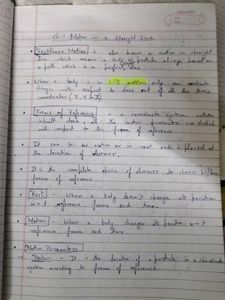 Ch:1 Motion in a straight line
• Rectilinear Motion : is also known as motion in straight
line which means a body or particle always travel on
a path which is a
When a body is in 1-D motion only one
changes with respect to time out of all the three
coordinates (X, Y & Z)
• Frame of Reference a coordinate system
is built
with respect to the frame of reference
• It can be in motion or in rest and is placed at
the location of observer.
• It is the complete choice of observer to choose his/her
frame of reference
• Rest : When a body doesn't change its position
w.r.t reference frame and time.
• Motion : When a body changes its position w.r.t
reference frame and time.
Motion Parameters
Position - It is the location of a particle in a coordinate
system according to frame of reference